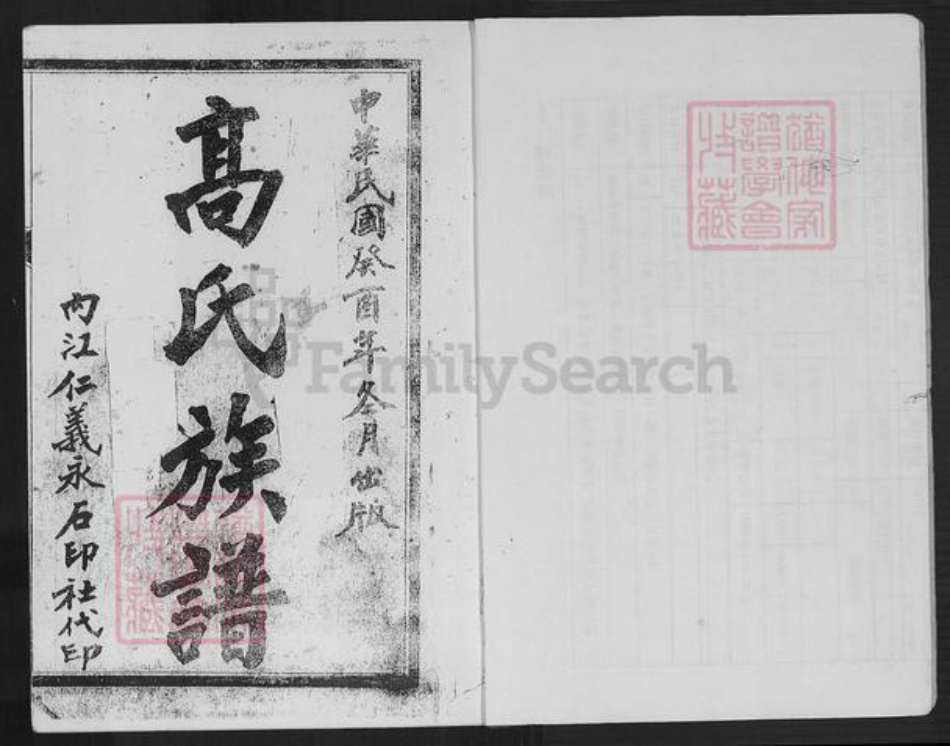 猶他家
譜學會
特藏
中華民國癸酉年冬月出版
高氏族譜
內江仁義永石印社代印
猶他家
譜學會
特藏
FamilySearch